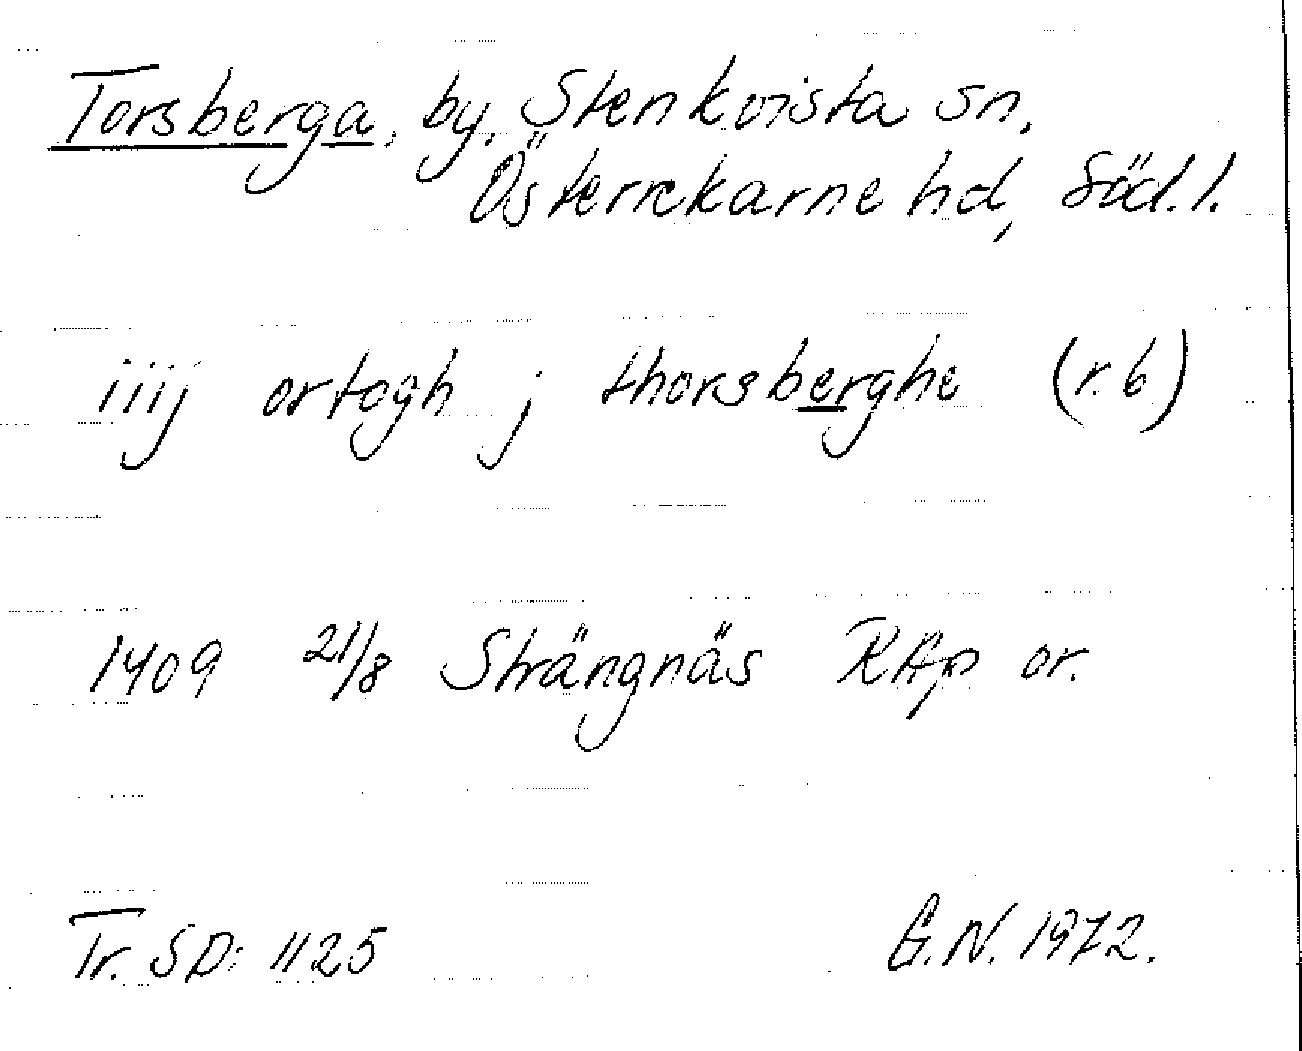 Torsberga, by, Stenkvista sn,
Österrekarne hd, Söd.l.
iiij ortogh j thorsberghe (r. 6)
1409 21/8 Strängnäs RAp or.
Tr. SD: 1125 G.N. 1972.